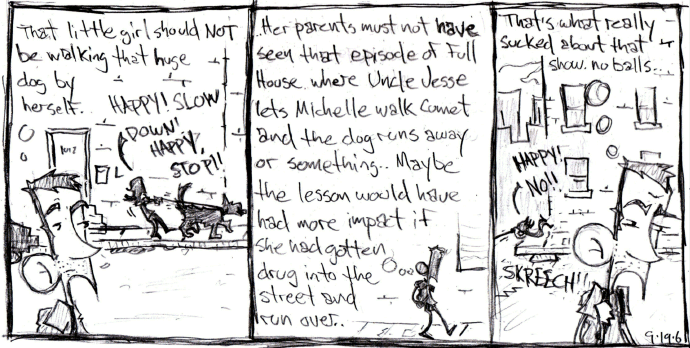 That little girl should NOT
be walking that huge
dog by
herself..
HAPPY! SLOW
DOWN!
HAPPY,
STOP!!
..Her parents must not have
seen that episode of Full
House where Uncle Jesse
lets Michelle walk Comet
and the dog runs away
or something.. Maybe
the lesson would have
had more impact if
she had gotten
drug into the
street and
run over..
That's what really
sucked about that
show. no balls..
HAPPY!
NO!!
SKREECH!!
9.19.6